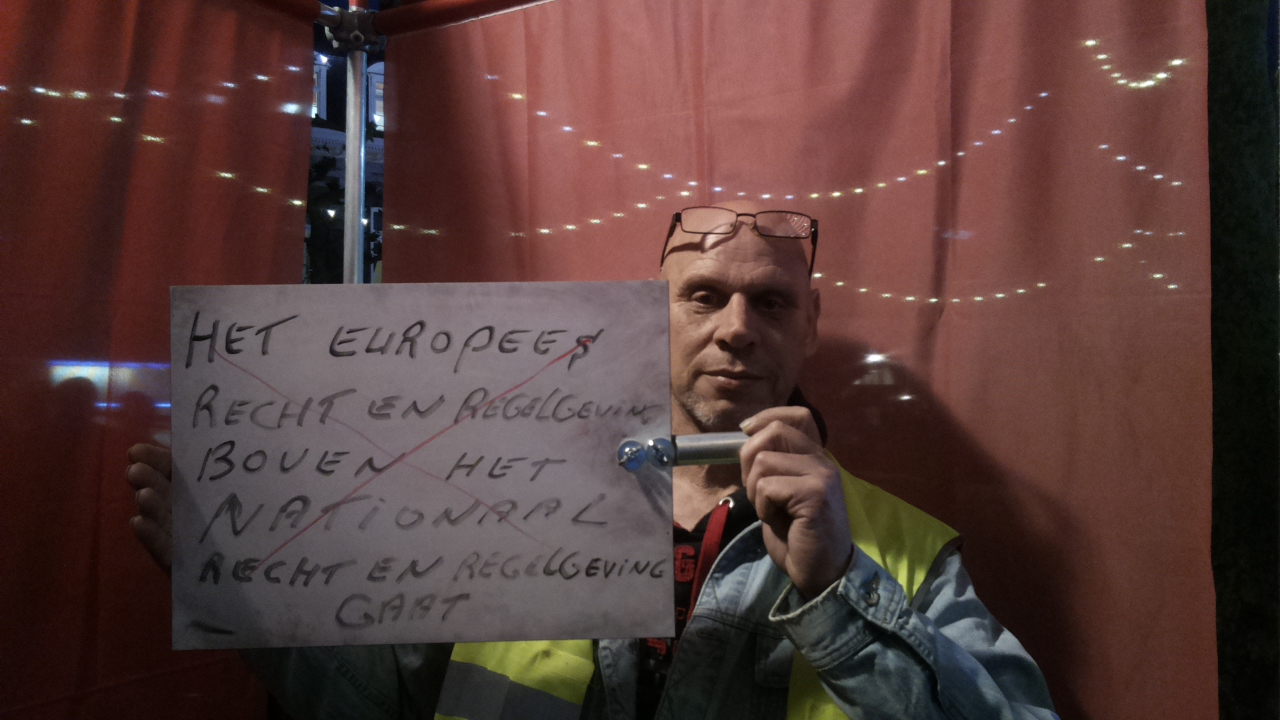 HET EUROPEES
RECHT EN REGELGEVING
BOVEN HET
NATIONAAL
RECHT EN REGELGEVING
GAAT